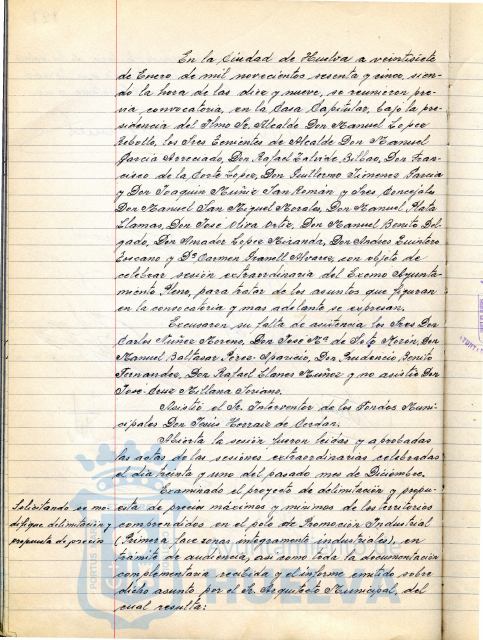 En la Ciudad de Huelva a veintisiete
de Enero de mil novecientos sesenta y cinco, sien-
do la hora de las diez y nueve, se reunieron pre-
via convocatoria, en la Casa Capitular, bajo la pre-
sidencia del Iltmo Sr. Alcalde Don Manuel Lopez
Rebollo, los Sres Tenientes de Alcalde Don Manuel
Garcia Don Rafael Bilbao, Don Fran-
cisco de la Corte Lopez, Don Guillermo Jimenez Garcia
y Don Joaquin Muñiz San Román y Sres Concejales
Don Manuel San Miguel Morales, Don Manuel Plata
Llamas, Don José Oliva Ortiz, Don Manuel Benito Del-
gado, Don Amador Lopez Miranda, Don Andres Quintero
y Dª Carmen Granell Alvaro, con objeto de
celebrar sesión extraordinaria del Excmo Ayunta-
miento Pleno, para tratar de los asuntos que figuran
en la convocatoria y mas adelante se expresan.
Excusaron su falta de asistencia los Sres Don
Carlos Nuñez Moreno, Don Jose Mª de Soto Morón, Don
Manuel Baltasar Perez Aparicio, Don Prudencio Benito
Fernandez, Don Rafael Llanes Muñoz y no asistió Don
Jose Cruz Millana Soriano.
Asistió el Sr. Interventor de los Fondos Muni-
cipales Don Jesús Herraiz de Cerdan.
Abierta la sesión fueron leidas y aprobadas
las actas de las sesiones extraordinarias celebradas
el dia treinta y uno del pasado mes de Diciembre.
Solicitando se mo-
difique delimitación y
propuesta de precios
Examinado el proyecto de delimitación y propu-
esta de precios máximos y mínimos de los territorios
comprendidos en el polo de Promoción Industrial
(Primera fase zonas integramente industriales), en
trámite de audiencia, asi como toda la documentación
complementaria recibida y el informe emitido sobre
dicho asunto por el Sr. Arquitecto Municipal, del
cual resulta:
HUELVA